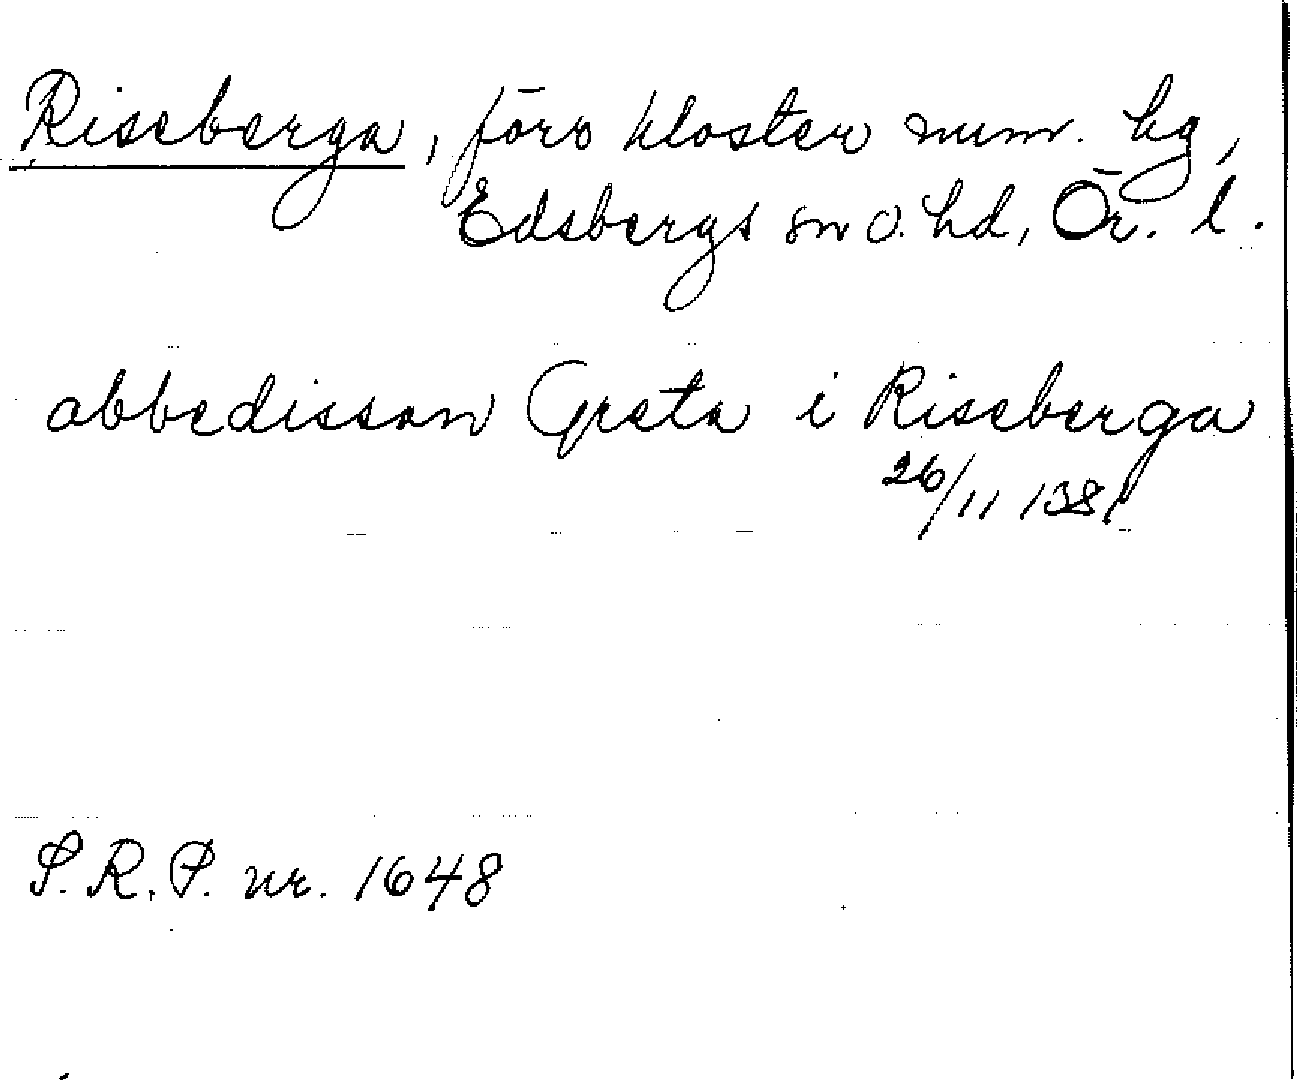 Riseberga, förv kloster num. hg,
Edsbergs sn o. hd, Ör. l.
abbedissan Greta i Riseberga
26/11 1381
S.R.P. nr. 1648